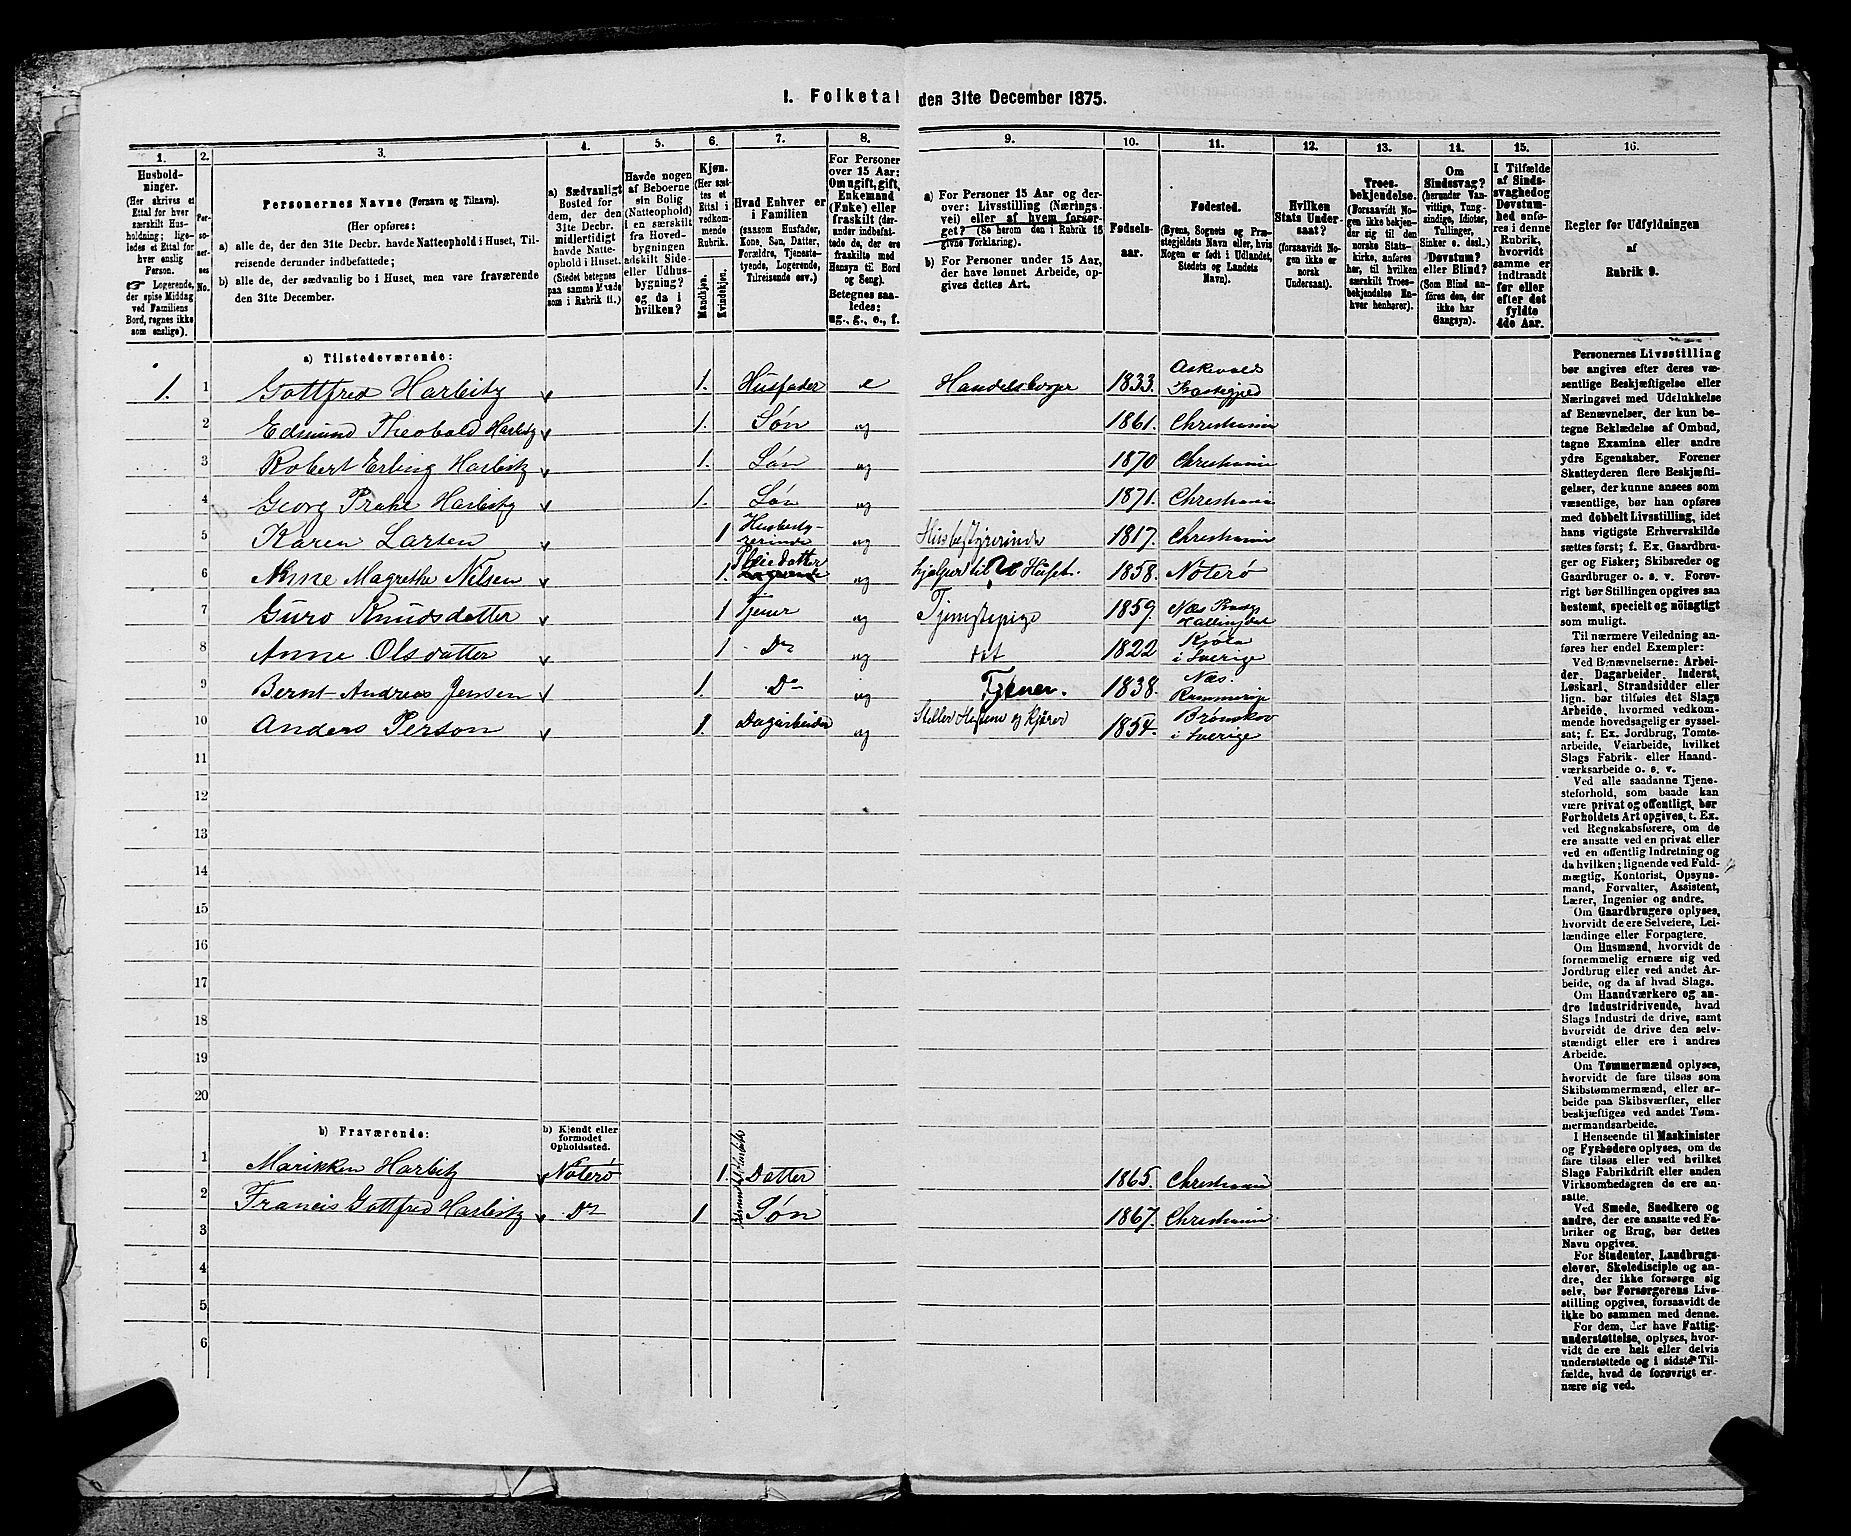 I. Folketal den 31te December 1875.
1. 2. 3. 4. 5. 6. 7. 8. 9. 10. 11. 12. 13. 14. 15. 16.
Husholdninger.
(Her skrives et Ettal for hver særskilt Husholdning; ligeledes et Ettal for hver enslig Person.
☞ Logerende, der spise Middag ved Familiens Bord, regnes ikke som enslige).
Personernes No.
Personernes Navne (Fornavn og Tilnavn).
(Her opføres:
a) alle de, der den 31te Decbr. havde Natteophold i Huset, Tilreisende derunder indbefattede;
b) alle de, der sædvanlig bo i Huset, men vare fraværende den 31te December.
a) Sædvanligt Bosted for dem, der den 31te Decbr. midlertidigt havde Natteophold i Huset.
(Stedet betegnes paa samme Maade som i Rubrik 11.)
Havde nogen af Beboerne sin Bolig (Natteophold) i en særskilt fra Hovedbygningen adskilt Side- eller Udhusbygning? og da i hvilken?
Kjøn.
(Her sættes et Ettal i vedkommende Rubrik.
Mandkjøn.
Kvindekjøn.
Hvad Enhver er i Familien
(saasom Husfader, Kone, Søn, Datter, Forældre, Tjenestetyende, Logerende, Tilreisende osv.)
For Personer over 15 Aar: Om ugift, gift, Enkemand (Enke) eller fraskilt (derunder indbefattede de, der ere fraskilte med Hensyn til Bord og Seng).
Betegnes saaledes: ug., g., e., f.
a) For Personer 15 Aar og derover: Livsstilling (Næringsvei) eller af hvem forsørget? (Se herom den i Rubrik 16 givne Forklaring).
b) For Personer under 15 Aar, der have lønnet Arbeide, opgives dettes Art.
Fødselsaar.
Fødested.
(Byens, Sognets og Præstegjeldets Navn eller, hvis Nogen er født i Udlandet, Stedets og Landets Navn).
Hvilken Stats Undersaat?
(forsaavidt Nogen ikke er norsk Undersaat).
Troesbekjendelse.
(Forsaavidt Nogen ikke bekjender sig til den norske Statskirke, anføres her, til hvilken særskilt Troesbekjendelse Enhver henhører).
Om Sindssvag?
(herunder Vanvittige, Tungsindige, Idioter, Tullinger, Sinker o. desl.)
Døvstum? eller Blind?
(Som Blind anføres den, der ikke har Gangsyn).
I Tilfælde af Sindssvaghed og Døvstumhed anføres i denne Rubrik, hvorvidt samme er indtraadt før eller efter det fyldte 4de Aar.
Regler for Udfyldningen
af
Rubrik 9.
a) Tilstedeværende:
1. 1 Gottfred Harbitz v 1. Husfader e Handelsborger 1833. Askvold Præstegjeld
2 Edmund Theobald Harbitz v 1. Søn ug 1861. Christiania
3 Robert Erling Harbitz v 1. Søn ug 1870 Christiania
4 Georg Prahl Harbitz v 1. Søn ug 1871. Christiania
5 Karen Larsen v 1 Husbestyrerinde ug Husbestyrerinde 1817. Christiania
6 Anne Magrethe Nilsen v 1. Pleiedatter ug hjelper til i Huset. 1858. Nøterø
7 Guro Knudsdatter v 1 Tjener ug Tjenestepige 1859. Næs Hallingdal
8 Anne Olsdatter v 1 Do ug dit 1822 i Sverige
9 Bernt Andreas Jensen v 1. Do ug Tjener. 1838. Næs Rommerige
10 Anders Person v 1. Dagarbeider ug Steller Hestene og kjører 1854. Brønskov i Sverige
11
12
13
14
15
16
17
18
19
20
b) Fraværende: b) Kjendt eller formodet Opholdssted.
1 Marikken Harbitz v Nøterø 1. Datter 1865. Christiania
2 Francis Gottfred Harbitz v Do 1 Søn 1867. Christiania
3
4
5
6
Personernes Livsstilling
bør angives efter deres væsentlige Beskjæftigelse eller
Næringsvei med Udelukkelse
af Benævnelser, der kun betegne Beklædelse af Ombud,
tagne Examina eller andre
ydre Egenskaber. Forener
Skatteyderen flere Beskjæftigelser, der kunne ansees som
væsentlige, bør han opføres
med dobbelt Livsstilling, idet
hans vigtigste Erhvervskilde
sættes først; f. Ex. Gaardbruger og Fisker; Skibsreder og
Gaardbruger o. s. v. Forøvrigt bør Stillingen opgives saa
bestemt, specielt og nøiagtigt
som muligt.
Til nærmere Veiledning anføres her endel Exempler:
Ved Benævnelserne: Arbeider, Dagarbeider, Inderst,
Løskarl, Strandsidder eller
lign. bør tilføies det Slags
Arbeide, hvormed vedkommende hovedsagelig er sysselsat; f. Ex. Jordbrug, Tomtearbeide, Veiarbeide, hvilket
Slags Fabrik- eller Haandværksarbeide o. s. v.
Ved alle saadanne Tjenesteforhold, som baade kan
være privat og offentligt, bør
Forholdets Art opgives, t. Ex.
ved Regnskabsførere, om de
ere ansatte ved en privat eller
ved en offentlig Indretning og
da hvilken; lignende ved Fuldmægtig, Kontorist, Opsynsmand, Forvalter, Assistent,
Lærer, Ingeniør og andre.
Om Gaardbrugere oplyses,
hvorvidt de ere Selveiere, Leilændinge eller Forpagtere.
Om Husmænd, hvorvidt de
fornemmelig ernære sig ved
Jordbrug eller ved andet Arbeide, og da af hvad Slags.
Om Haandværkere og andre Industridrivende, hvad
Slags Industri de drive, samt
hvorvidt de drive den selvstændigt eller ere i andres
Arbeide.
Om Tømmermænd oplyses,
hvorvidt de fare tilsøs som
Skibstømmermænd, eller arbeide paa Skibsværfter, eller
beskjæftiges ved andet Tømmermandsarbeide.
I Henseende til Maskinister
og Fyrbødere oplyses, om de
fare tilsøs eller ved hvilket
Slags Fabrikdrift eller anden
Virksomhedsgren de ere ansatte.
Ved Smede, Snedkere og
andre, der ere ansatte ved Fabriker og Brug, bør dettes
Navn opgives.
For Studenter, Landbrugselever, Skoledisciple og andre, der ikke forsørge sig
selv, bør Forsørgerens Livsstilling opgives, forsaavidt de
ikke bo sammen med denne.
For dem, der have Fattigunderstøttelse, oplyses, hvorvidt de ere helt eller delvis
understøttede og i sidste Tilfælde, hvad de forøvrigt ernære sig ved.